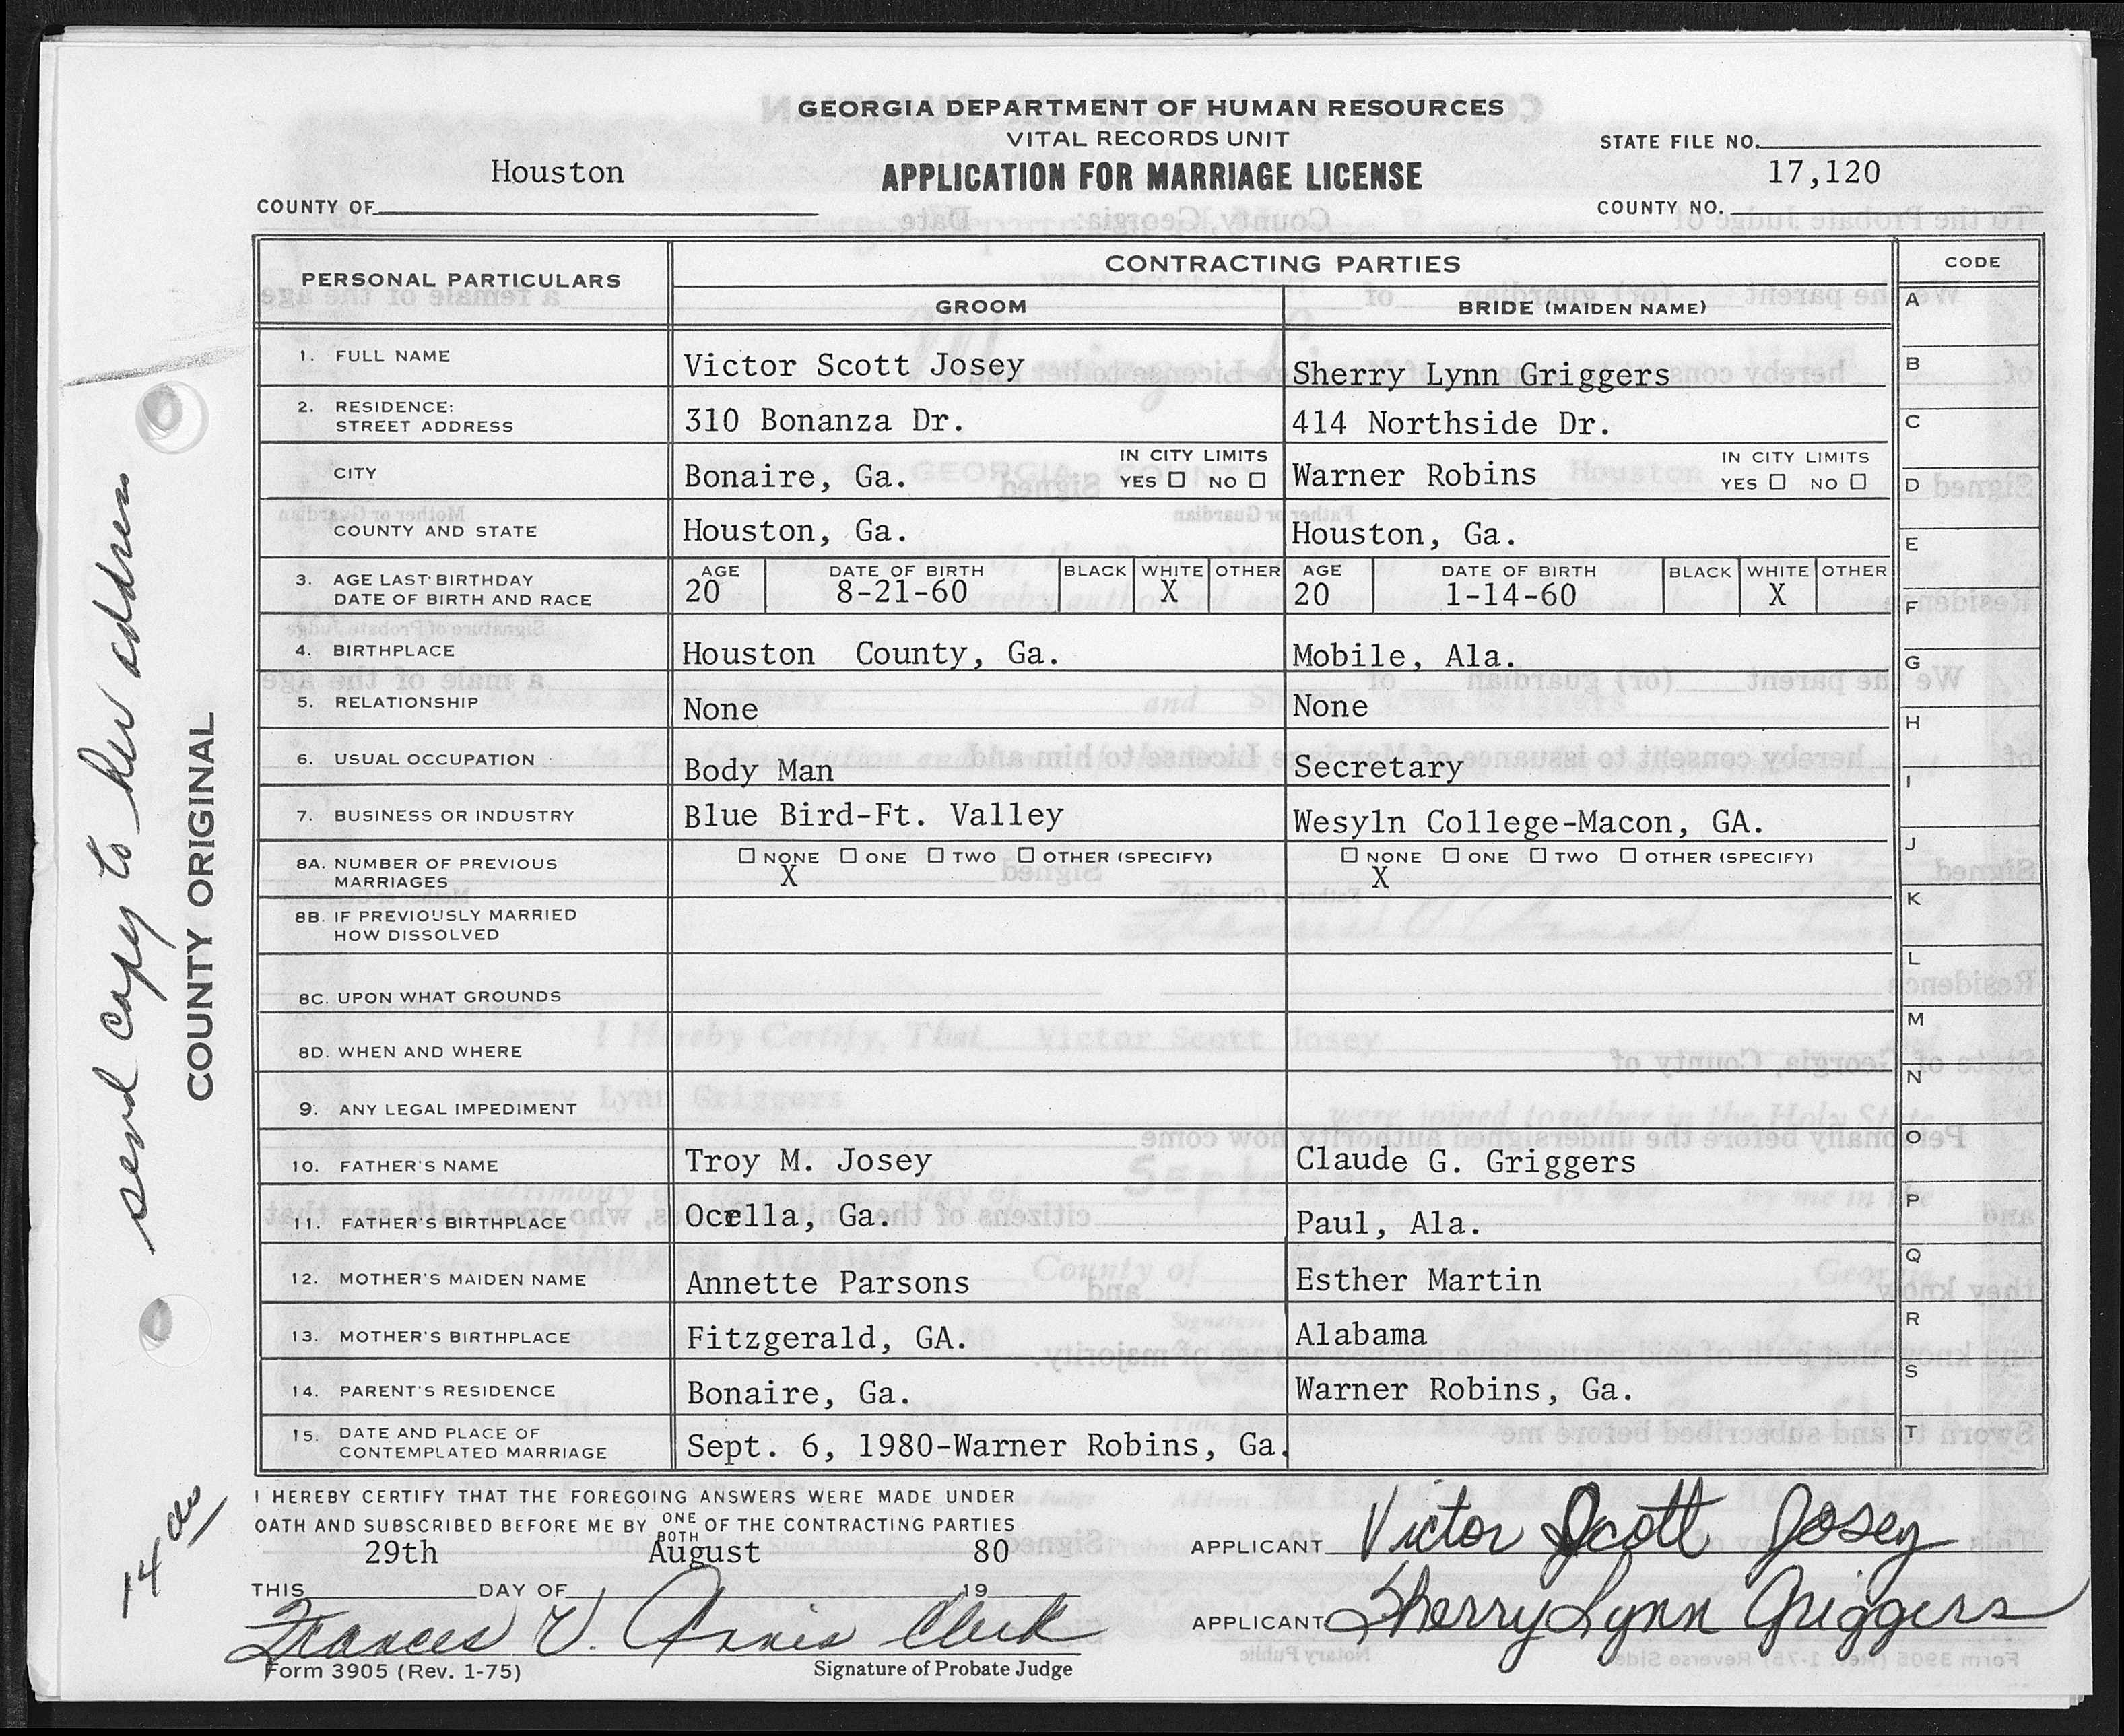 GEORGIA DEPARTMENT OF HUMAN RESOURCES
VITAL RECORDS UNIT
APPLICATION FOR MARRIAGE LICENSE
STATE FILE NO.
COUNTY OF Houston
COUNTY NO. 17,120
PERSONAL PARTICULARS CONTRACTING PARTIES CODE
GROOM BRIDE (MAIDEN NAME)
1. FULL NAME Victor Scott Josey Sherry Lynn Griggers
2. RESIDENCE: STREET ADDRESS 310 Bonanza Dr. 414 Northside Dr.
CITY Bonaire, Ga. IN CITY LIMITS YES ☐ NO ☐ Warner Robins IN CITY LIMITS YES ☐ NO ☐
COUNTY AND STATE Houston, Ga. Houston, Ga.
3. AGE LAST BIRTHDAY DATE OF BIRTH AND RACE AGE 20 DATE OF BIRTH 8-21-60 BLACK WHITE X OTHER AGE 20 DATE OF BIRTH 1-14-60 BLACK WHITE X OTHER
4. BIRTHPLACE Houston County, Ga. Mobile, Ala.
5. RELATIONSHIP None None
6. USUAL OCCUPATION Body Man Secretary
7. BUSINESS OR INDUSTRY Blue Bird-Ft. Valley Wesyln College-Macon, GA.
8A. NUMBER OF PREVIOUS MARRIAGES ☐ NONE X ☐ ONE ☐ TWO ☐ OTHER (SPECIFY) ☐ NONE X ☐ ONE ☐ TWO ☐ OTHER (SPECIFY)
8B. IF PREVIOUSLY MARRIED HOW DISSOLVED
8C. UPON WHAT GROUNDS
8D. WHEN AND WHERE
9. ANY LEGAL IMPEDIMENT
10. FATHER'S NAME Troy M. Josey Claude G. Griggers
11. FATHER'S BIRTHPLACE Ocella, Ga. Paul, Ala.
12. MOTHER'S MAIDEN NAME Annette Parsons Esther Martin
13. MOTHER'S BIRTHPLACE Fitzgerald, GA. Alabama
14. PARENT'S RESIDENCE Bonaire, Ga. Warner Robins, Ga.
15. DATE AND PLACE OF CONTEMPLATED MARRIAGE Sept. 6, 1980-Warner Robins, Ga.
A
B
C
D
E
F
G
H
I
J
K
L
M
N
O
P
Q
R
S
T
I HEREBY CERTIFY THAT THE FOREGOING ANSWERS WERE MADE UNDER
OATH AND SUBSCRIBED BEFORE ME BY ONE BOTH OF THE CONTRACTING PARTIES
THIS 29th DAY OF August 19 80
Frances V. Annis Clerk
Signature of Probate Judge
Form 3905 (Rev. 1-75)
APPLICANT Victor Scott Josey
APPLICANT Sherry Lynn Griggers
send copy to her address
COUNTY ORIGINAL
14 00